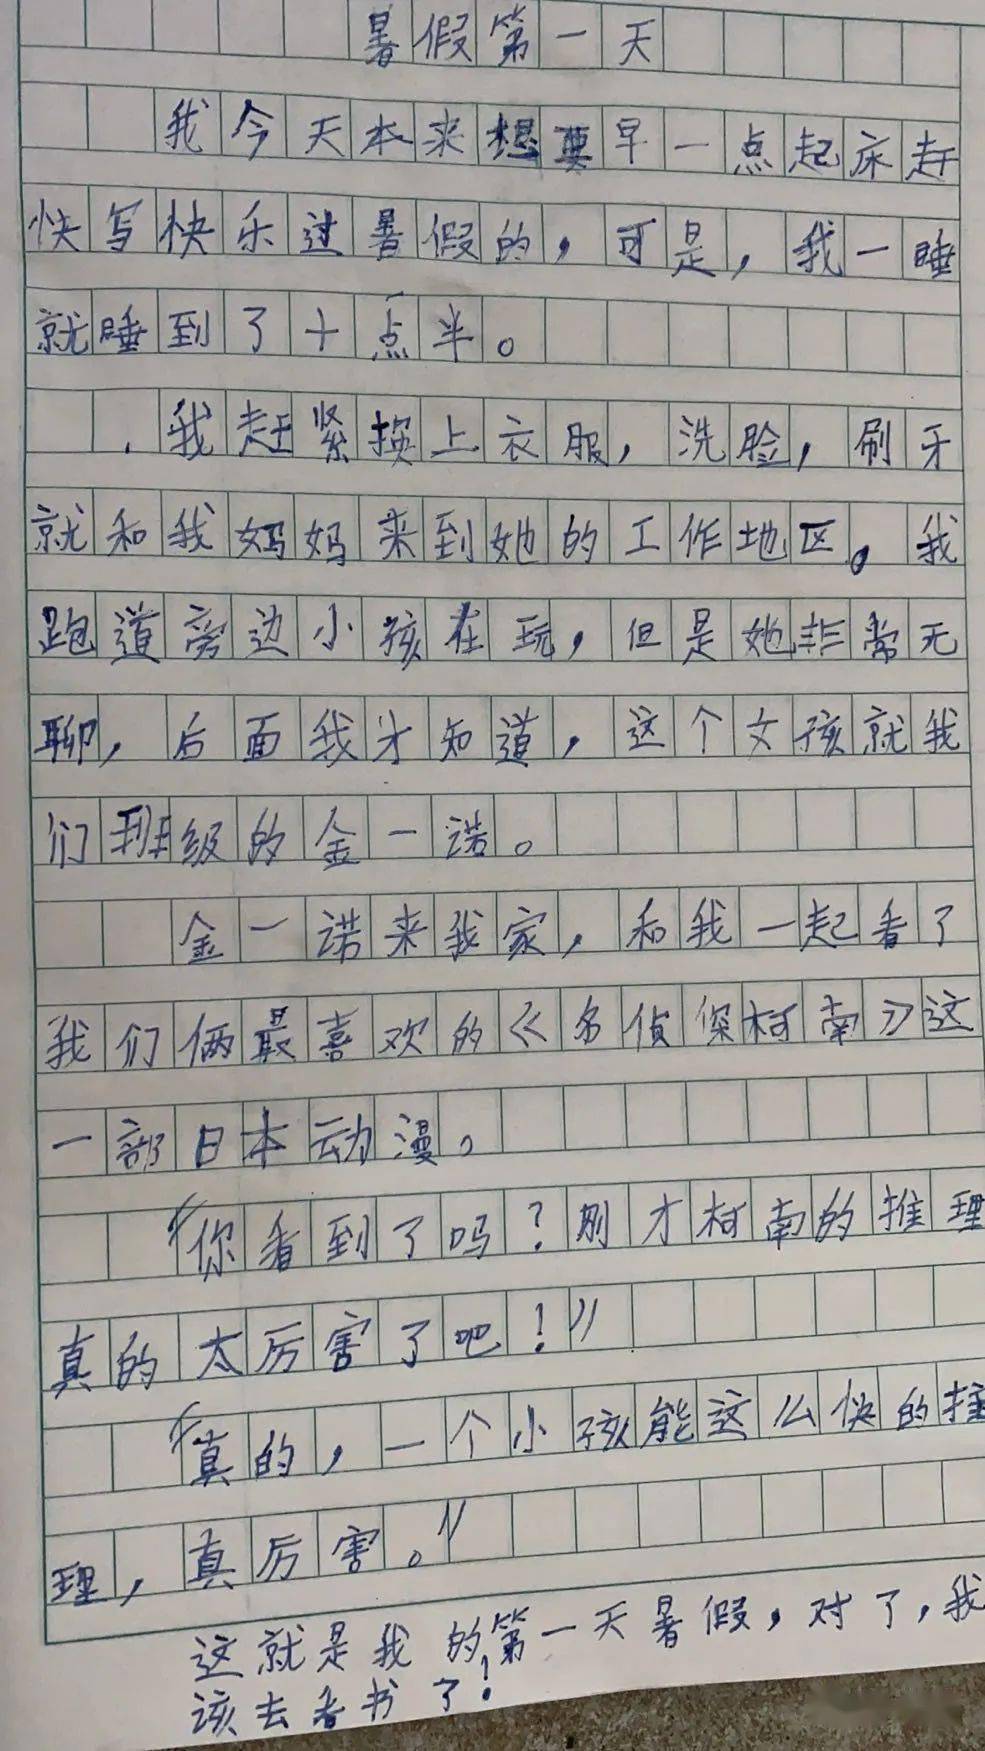 暑假第一天
我今天本来想要早一点起床赶
快写快乐过暑假的，可是，我一睡
就睡到了十点半。
我赶紧换上衣服，洗脸，刷牙
就和我妈妈来到她的工作地区。我
跑道旁边小孩在玩，但是她非常无
聊，后面我才知道，这个女孩就我
们班级的金一诺。
金一诺来我家，和我一起看了
我们俩最喜欢的《名侦探柯南》这
一部日本动漫。
“你看到了吗？刚才柯南的推理
真的太厉害了吧！”
“真的，一个小孩能这么快的推
理，真厉害。”
这就是我的第一天暑假，对了，我
该去看书了！